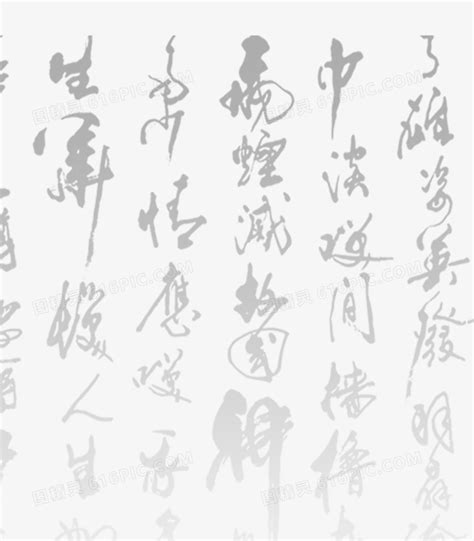 了雄姿英發羽扇綸
巾談笑間檣櫓
飛煙滅故國神
多情應笑我
生華髮人生如
图精灵 616PIC.COM